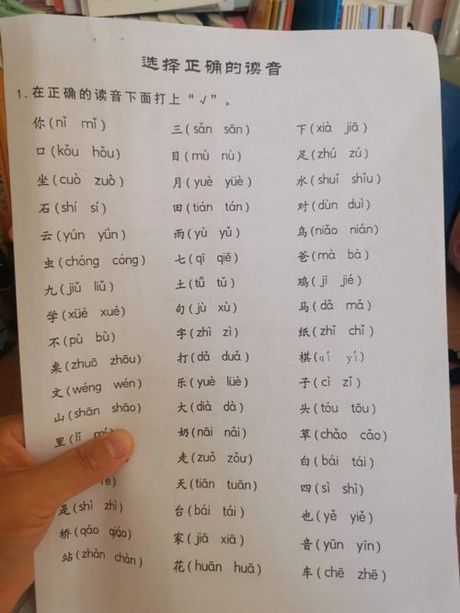 选择正确的读音
1.在正确的读音下面打上“√”。
你(nǐ mǐ) 三(sǎn sān) 下(xià jiā)
口(kǒu hǒu) 目(mù nù) 足(zhú zú)
坐(cuò zuò) 月(yuè yüè) 水(shuǐ shǐu)
石(shí sí) 田(tián tán) 对(dùn duì)
云(yún yǘn) 雨(yù yǔ) 鸟(niǎo nián)
虫(chóng cóng) 七(qī qiē) 爸(mà bà)
九(jiǔ liǔ) 土(tǚ tǔ) 鸡(jī jié)
学(xüé xué) 句(jù xù) 马(dǎ mǎ)
不(pù bù) 字(zhì zì) 纸(zhǐ chǐ)
桌(zhuō zhōu) 打(dǎ duǎ) 棋(qí yí)
文(wéng wén) 乐(yuè lüè) 子(cì zǐ)
山(shān shāo) 大(dià dà) 头(tóu tōu)
里(lǐ 奶(nāi nǎi) 草(chǎo cǎo)
走(zuǒ zǒu) 白(bái tái)
天(tiān tuān) 四(sì shì)
是(shì zhì) 台(bái tái) 也(yě yiě)
桥(qáo qiáo) 家(jiā xiā) 音(yūn yīn)
站(zhàn chàn) 花(huān huā) 车(chē zhē)